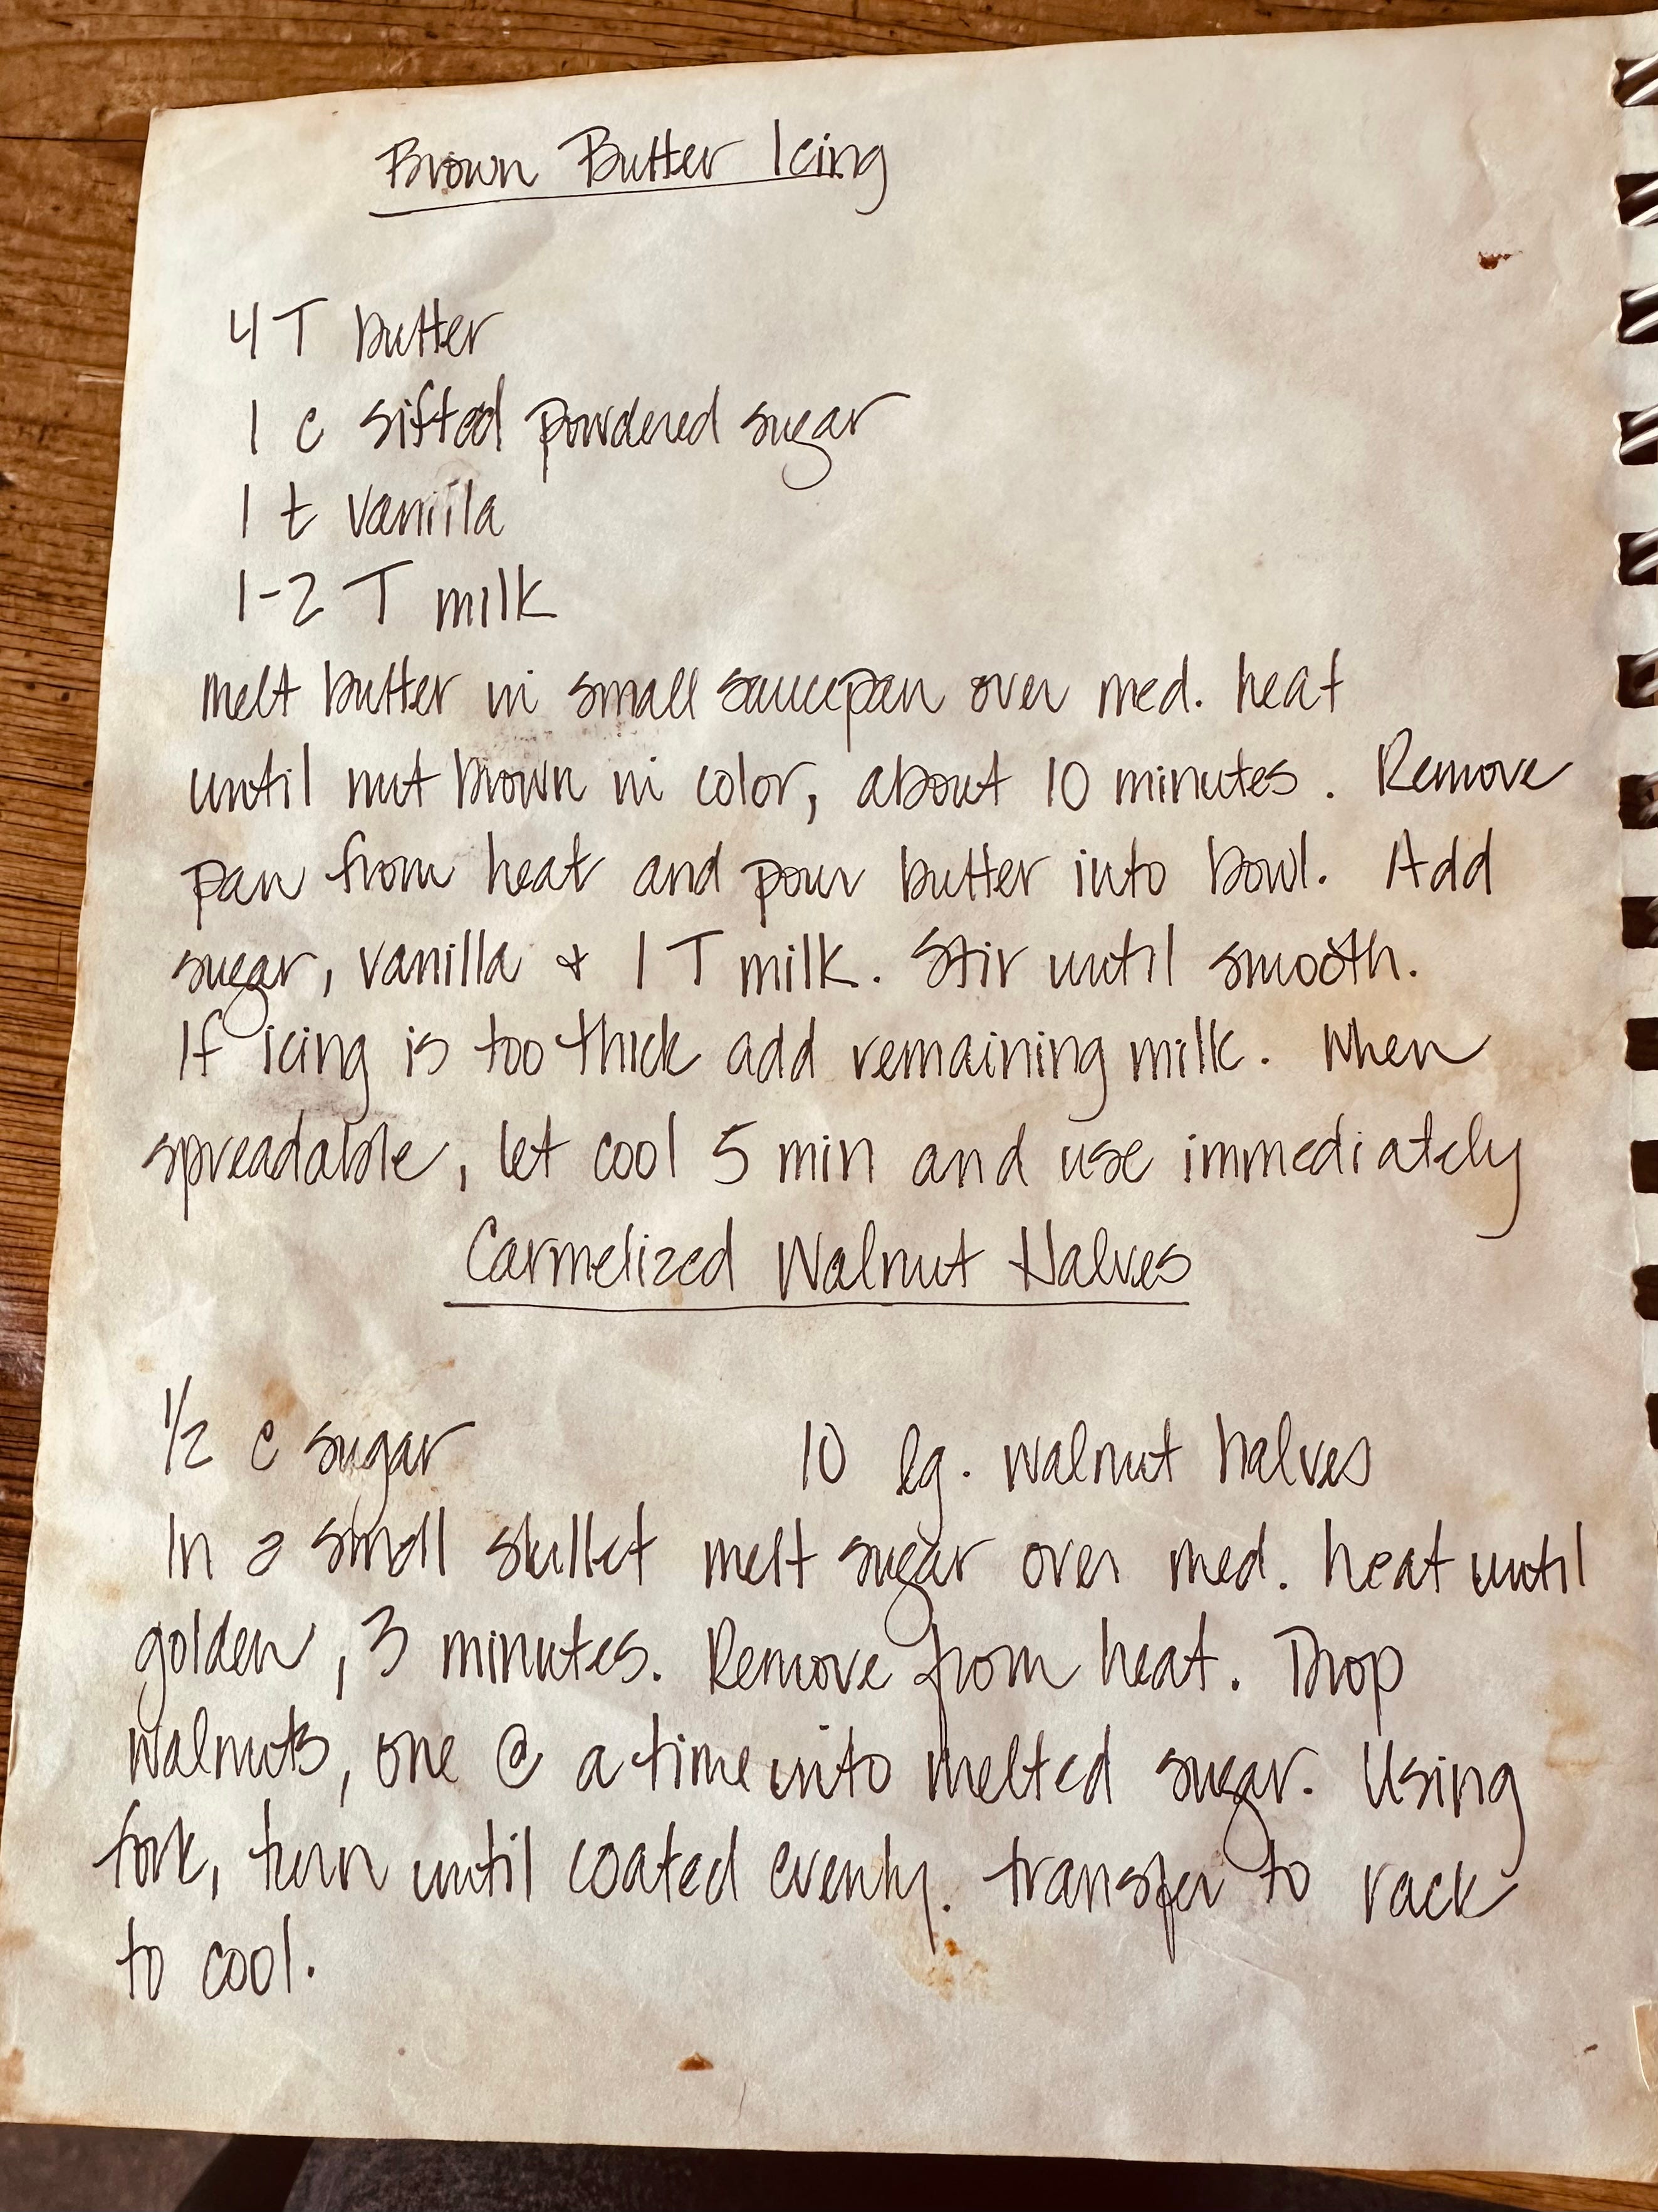 Brown Butter Icing
4 T butter
1 c sifted powdered sugar
1 t vanilla
1-2 T milk
melt butter in small saucepan over med. heat
until nut brown in color, about 10 minutes. Remove
pan from heat and pour butter into bowl. Add
sugar, vanilla & 1 T milk. Stir until smooth.
If icing is too thick add remaining milk. When
spreadable, let cool 5 min and use immediately
Carmelized Walnut Halves
1/2 c sugar 10 lg. walnut halves
In a small skillet melt sugar over med. heat until
golden, 3 minutes. Remove from heat. Drop
walnuts, one @ a time into melted sugar. Using
fork, turn until coated evenly. transfer to rack
to cool.